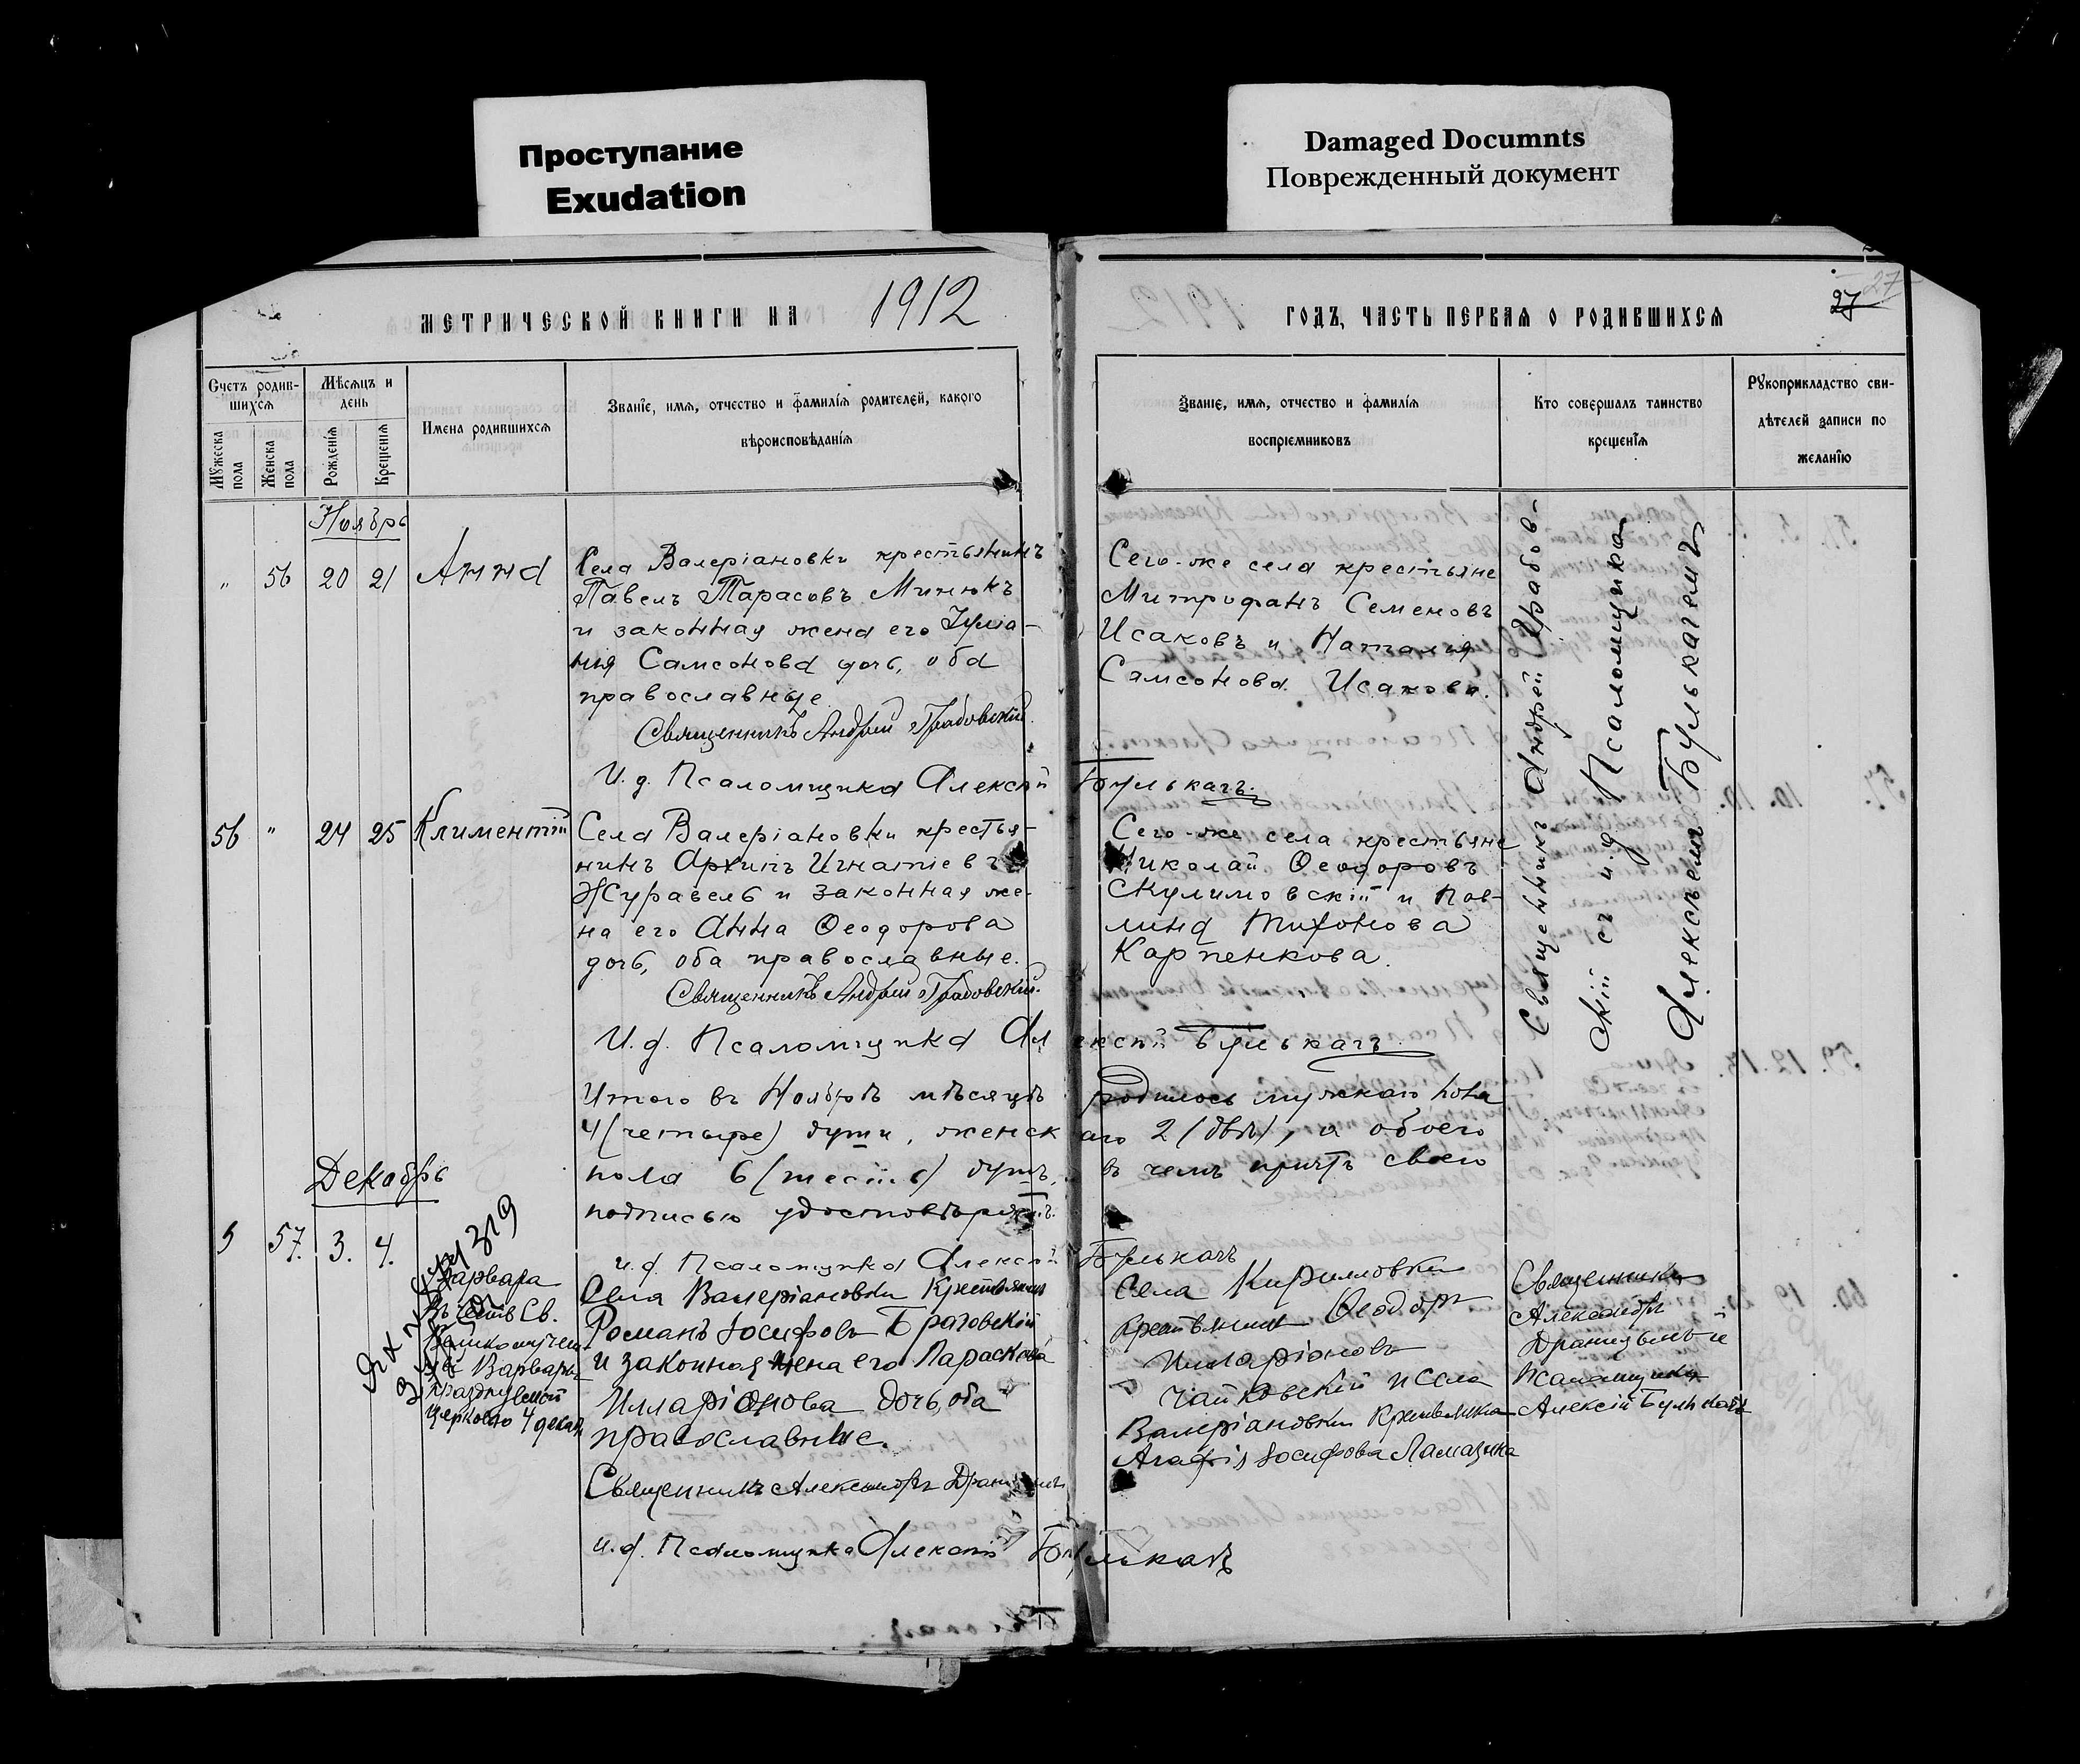 Проступание
Exudation
Damaged Documnts
Поврежденный документ
МЕТРИЧЕСКОЙ КНИГИ НА 1912
ГОДЪ, ЧАСТЬ ПЕРВАЯ О РОДИВШИХСЯ
27
27
Счетъ родив-
шихся
Мѣсяцъ и
день
Мужеска
пола
Женска
пола
Рожденія
Крещенія
Имена родившихся
Званіе, имя, отчество и фамилія родителей, какого
вѣроисповѣданія
Званіе, имя, отчество и фамилія
воспріемниковъ
Кто совершалъ таинство
крещенія
Рукоприкладство сви-
дѣтелей записи по
желанію
Ноябрь
" 56 20 21 Анна
Села Валеріановки крестьянинъ
Павелъ Тарасовъ Минюкъ
и законная жена его Іуліа-
нія Самсонова дочь, оба
православные
Священникъ Андрей Грабовскій
И. д. Псаломщика Алексѣй Булькачъ.
Сего-же села крестьяне
Митрофанъ Семеновъ
Исаковъ и Наталія
Самсонова Исакова.
Священникъ Андрей Грабов-
скій съ и. д. Псаломщика
Алексѣемъ Булькачемъ
56 " 24 25 Климентій
Села Валеріановки крестья-
нинъ Архипъ Игнатіевъ
Журавель и законная же-
на его Анна Ѳеодорова
дочь, оба православные.
Священникъ Андрей Грабовскій.
И. д. Псаломщика Алексѣй Булькачъ.
Сего-же села крестьяне
Николай Ѳеодоровъ
Скулимовскій и Пав-
лина Тихонова
Карпенкова.
Итого въ Ноябрѣ мѣсяцѣ родилось мужскаго пола
4 (четыре) души, женскаго 2 (двѣ), а обоего
пола 6 (шесть) душъ, въ чемъ причтъ своею
подписью удостовѣряетъ.
и. д. Псаломщика Алексѣй Булькачъ
Декабрь
57. 3. 4.
Варвара
въ честь Св.
Варвары
празднуемой
Церковью 4 декаб
Села Валеріановки Крестьянинъ
Романъ Іосифовъ Браговскій
и законная жена его Параскева
Илларіонова дочь, оба
православные.
Священникъ Александръ
и. д. Псаломщика Алексѣй Булькачъ
Села Кирилловки
крестьянинъ Ѳеодоръ
Илларіоновъ
Чайковскій и села
Валеріановки Крестьянка
Агафія Іосифова
Священникъ
Александръ
Псаломщикъ
Алексѣй Булькачъ